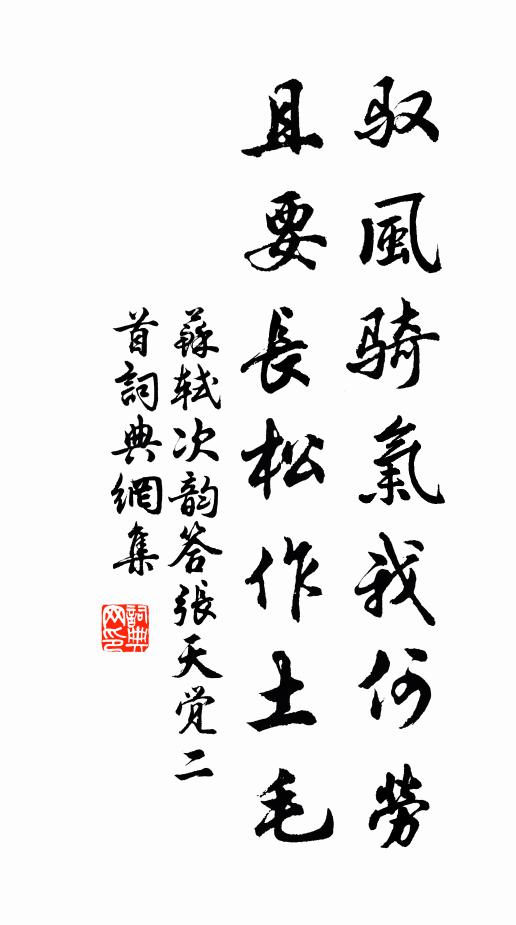 驭風骑氣我何勞
且要長松作土毛
蘇軾次韵答張天觉二
首詞典網集
詞典
网印